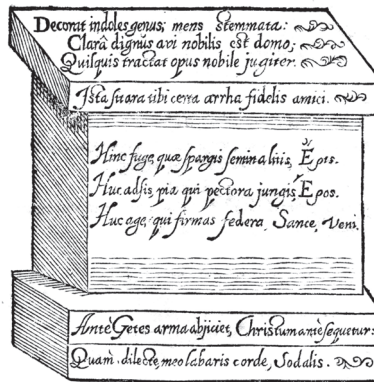 Decorat indoles genus; mens stemmata:
Clarâ dignus avi nobilis est domo;
Quisquis tractat opus nobile jugiter.
Ista fuara tibi certa arrha fidelis amici.
Hinc fuge, quæ spargis semina litis, Eris.
Huc adsis, pia qui pectora jungis, Eros.
Huc age, qui firmas federa, Sance, veni.
Antè Getes arma abjiciet, Christum antè sequetur:
Quam, dilecte, meo labaris corde, Sodalis.